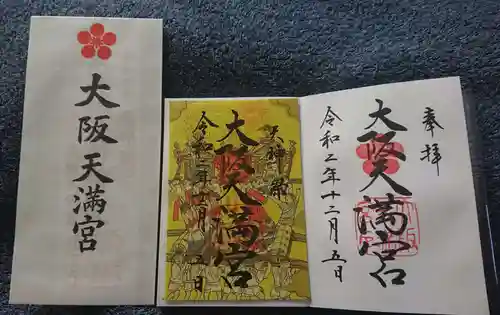 大阪天満宮
天神祭
大阪天満宮
令和二年十二月五日
奉拝
大阪天満宮
令和二年十二月五日